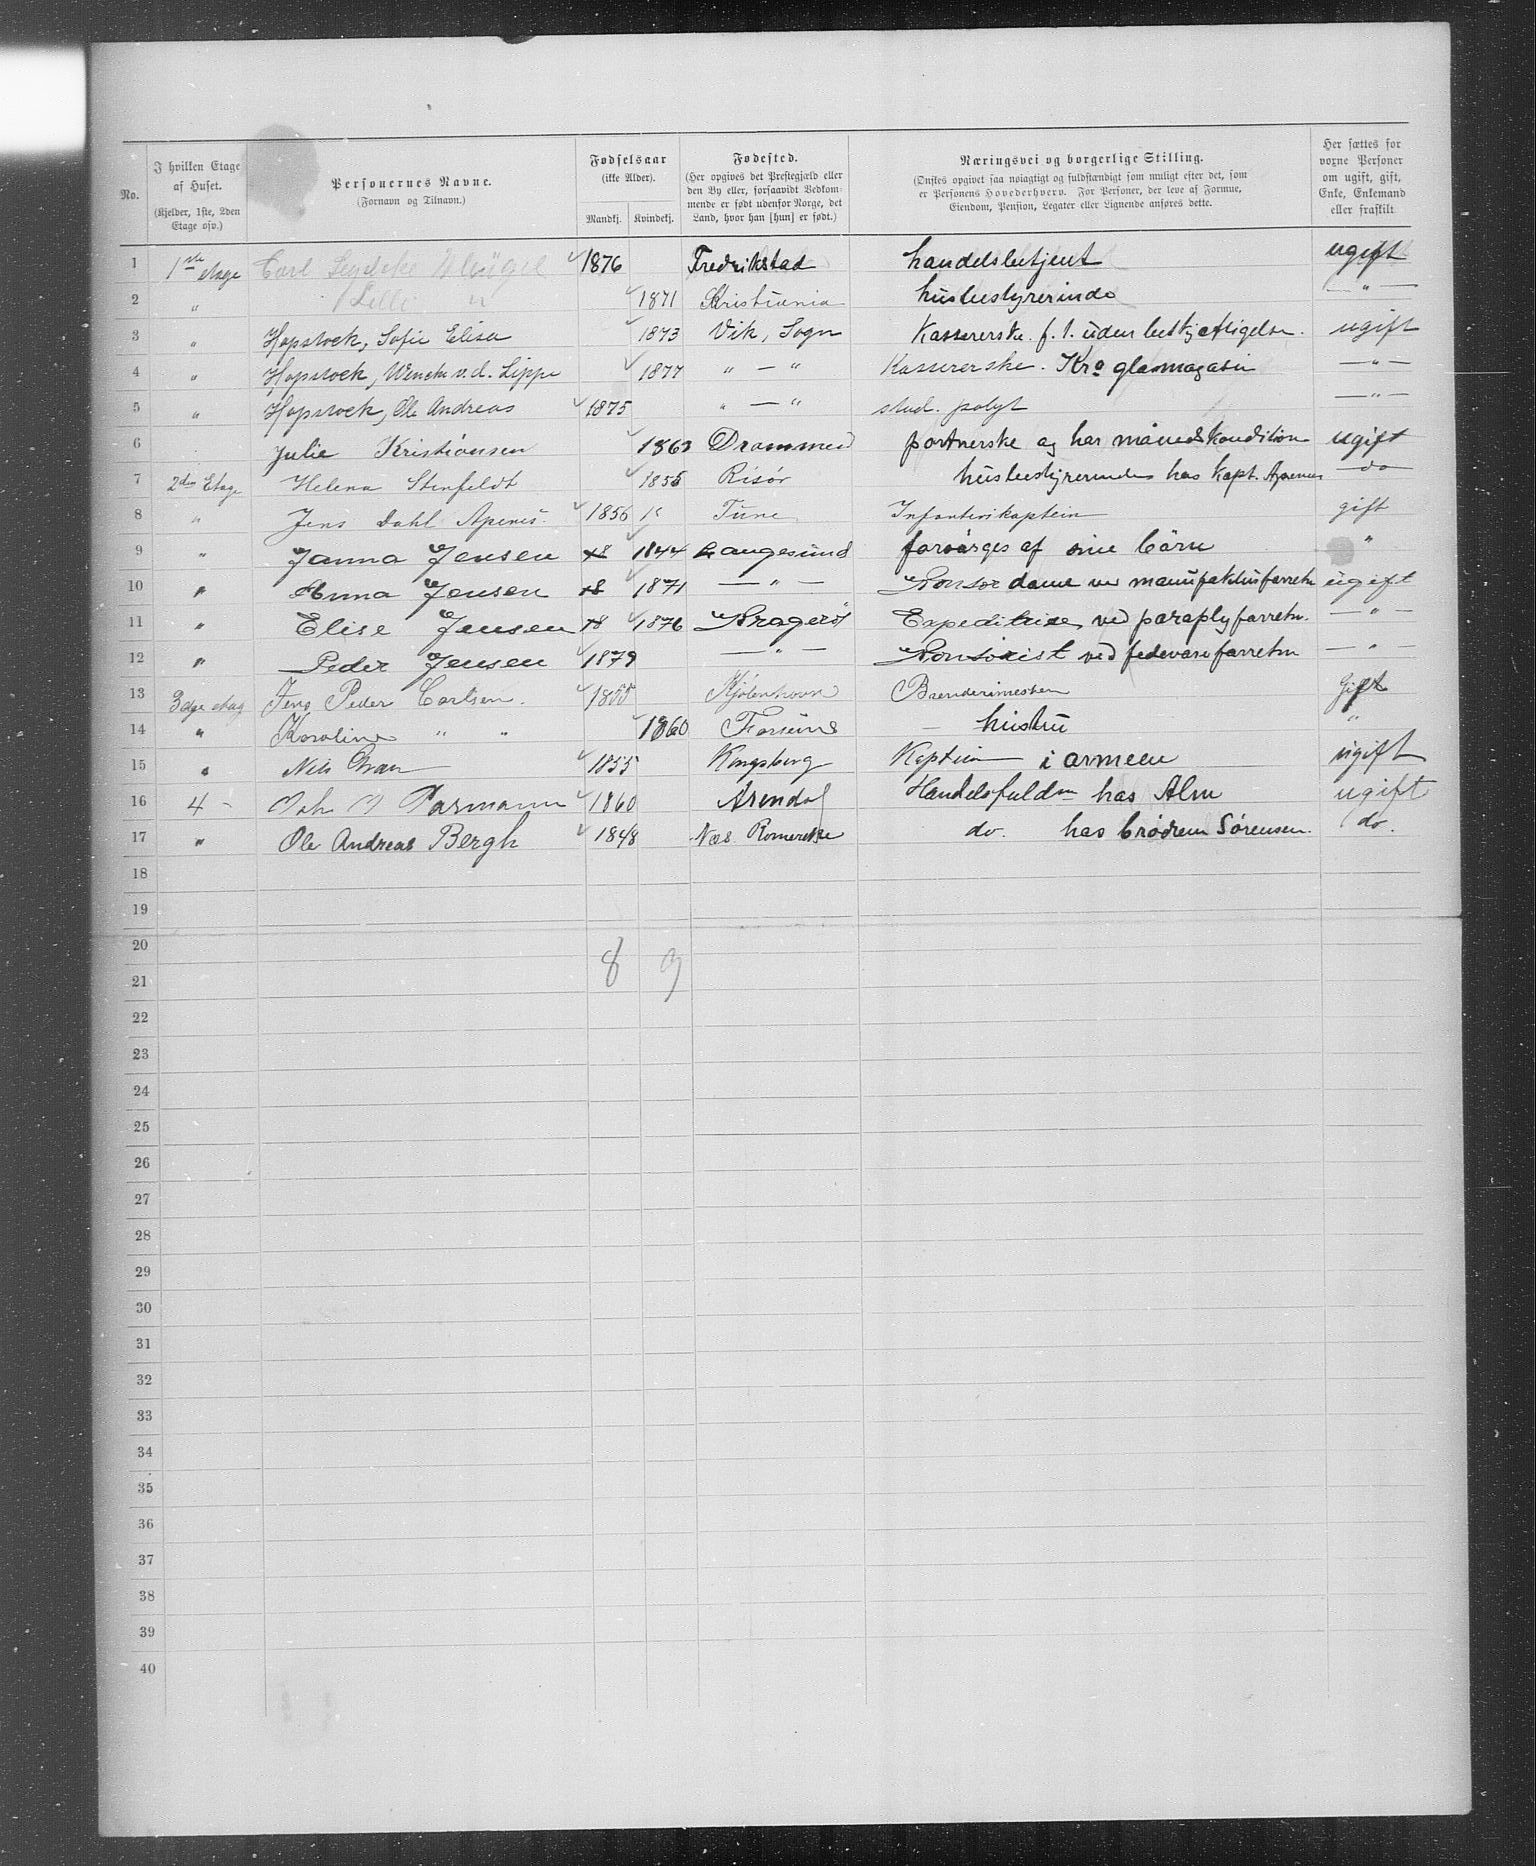 No.	I hvilken Etage af Huset. (Kjelder, 1ste, 2den Etage osv.)	Personernes Navne. (Fornavn og Tilnavn.)	Fødselsaar (ikke Alder). Mandkj. Kvindekj.	Fødested. (Her opgives det Prestegjæld eller den By eller, forsaavidt Vedkommende er født udenfor Norge, det Land, hvor han [hun] er født.)	Næringsvei og borgerlige Stilling. (Ønskes opgivet saa nøiagtigt og fuldstændigt som muligt efter det, som er Personens Hovederhverv. For Personer, der leve af Formue, Eiendom, Pension, Legater eller Lignende anføres dette.)	Her sættes for voxne Personer om ugift, gift, Enke, Enkemand eller fraskilt
1	1ste etage	Carl Klügel	1876	Fredrikstad	handelsbetjent	ugift
2	"	"	1871	Kristiania	husbestyrerinde	— " —
3	"	Hopstock, Sofie Elisa	1873	Vik, Sogn	Kassererske. f. t. uden beskjæftigelse.	ugift
4	"	Hopstock, Wencke v.d. Lippe	1877	" — "	Kassererske. Kra glasmagasin	— " —
5	"	Hopstock, Ole Andreas	1875	" — "	stud. polyt	— " —
6	Julie Kristiansen	1863	Drammen	portnerske og har månedskondition	ugift
7	2den Etage	Helena Stenfeldt	1855	Risør	husbestyrerinde hos Kapt. Apenes	do
8	"	Jens Dahl Apenes.	1856	Tune	Infanterikaptein	gift
9	"	Janna Jensen	18	1844	Langesund	forsørges af sine børn	"
10	"	Anna Jensen	18	1871	— " —	Kontordame ved manufakturforretn	ugift
11	"	Elise Jensen	18	1876	Kragerö	Expeditrice ved paraplyforretn.	— " —
12	"	Peder Jensen	1879	— " —	Kontorist ved fedevareforretn	— " —
13	3dje etag	Jens Peder Carlsen.	1855	Kjøbenhavn	Brenderimester	Gift
14	"	Karoline " "	1860	Forsund	— hustru	"
15	"	Nils Gran	1855	Kongsberg	Kaptein i armeen	ugift
16	4 –	Joh Parmann	1860	Arendal	Handelsfuldm hos Alm	ugift
17	"	Ole Andreas Bergh	1848	Næs Romerike	do. hos brødrene Sørensen.	do.
18
19
20
8 9
21
22
23
24
25
26
27
28
29
30
31
32
33
34
35
36
37
38
39
40